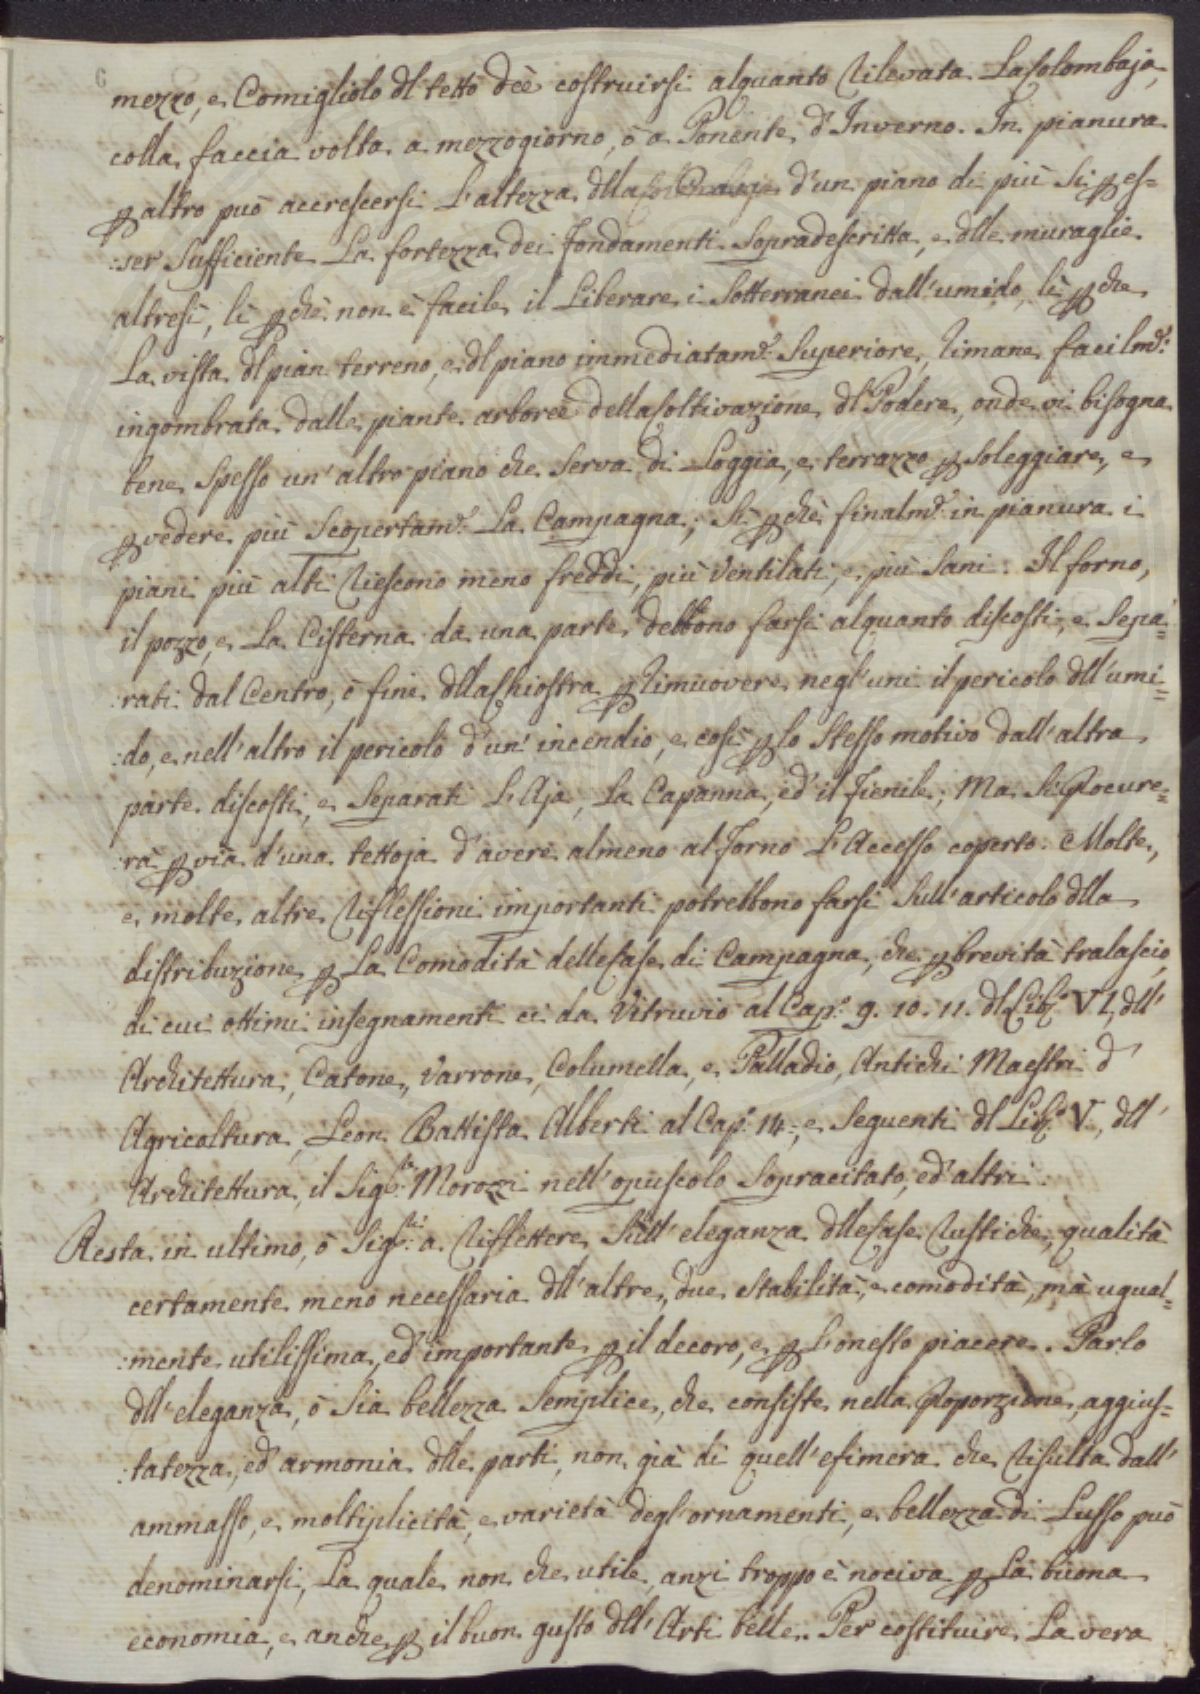 6
mezzo, e Comigliolo dl tetto dèe costruirsi alquanto rilevata La Colombaja,
colla faccia volta a mezzogiorno, ò a Ponente d'Inverno. In pianura
p altro può accrescersi L'altezza dlla d'un piano di più sì p es=
:ser sufficiente La fortezza dei fondamenti sopradescritta, e dlle muraglie
altresì, sì pchè non è facile il Liberare i Sotterranei dall'umido, sì pche
La vista dl pian terreno, e dl piano immediatamᵉ. Superiore, rimane facilmᵉ:
ingombrata dalle piante arboree della Coltivazione dl Podere, onde vi bisogna
bene spesso un'altro piano che serva di Loggia, e terrazzo p soleggiare, e
p vedere più scopertamᵉ. La Campagna; sì pchè finalmᵉ. in pianura i
piani più alti riescono meno freddi, più ventilati, e più sani. Il forno,
il pozzo, e La Cisterna da una parte debbono farsi alquanto discosti, e sepa=
:rati dal Centro, ò fine dlla Chiostra p rimuovere negl'uni il pericolo dll'umi=
:do, e nell'altro il pericolo d'un'incendio, e così p lo stesso motivo dall'altra
parte discosti, e separati L'Aja, La Capanna, ed il Fienile; Ma si pocure=
:rà p via d'una tettoja d'avere almeno al Forno L'Accesso coperto. Molte,
e molte altre riflessioni importanti potrebbono farsi sull'articolo dlla
distribuzione p La Comodità delle Case di Campagna, che p brevità tralascio,
di cui ottimi insegnamenti ci da Vitruvio al Cap.º 9. 10. 11. dl Lib.º VI, dll'
Architettura, Catone, Varrone, Columella, e Palladio, Antichi Maestri d'
Agricoltura, Leon Battista Alberti al Cap.º 14., e seguenti dl Lib.º V., dll'
Architettura, il Sigᵉ. Morozzi nell'opuscolo sopracitato, ed altri.
Resta in ultimo, ò Sigʳⁱ. a riflettere sull'eleganza dlle Case rustiche, qualità
certamente meno necessaria dll'altre due stabilità, e comodità, mà ugual=
:mente utilissima, ed importante p il decoro, e p L'onesto piacere. Parlo
dll'eleganza, ò sia bellezza semplice, che consiste nella poporzione, aggius=
:tatezza, ed armonia dlle parti, non già di quell'efimera che risulta dall'
ammasso, e moltiplicità, e varietà degl'ornamenti, e bellezza di Lusso può
denominarsi, La quale non che utile, anzi troppo è nociva p La buona
economia, e anche p il buon gusto dll'Arti belle. Per costituire La vera